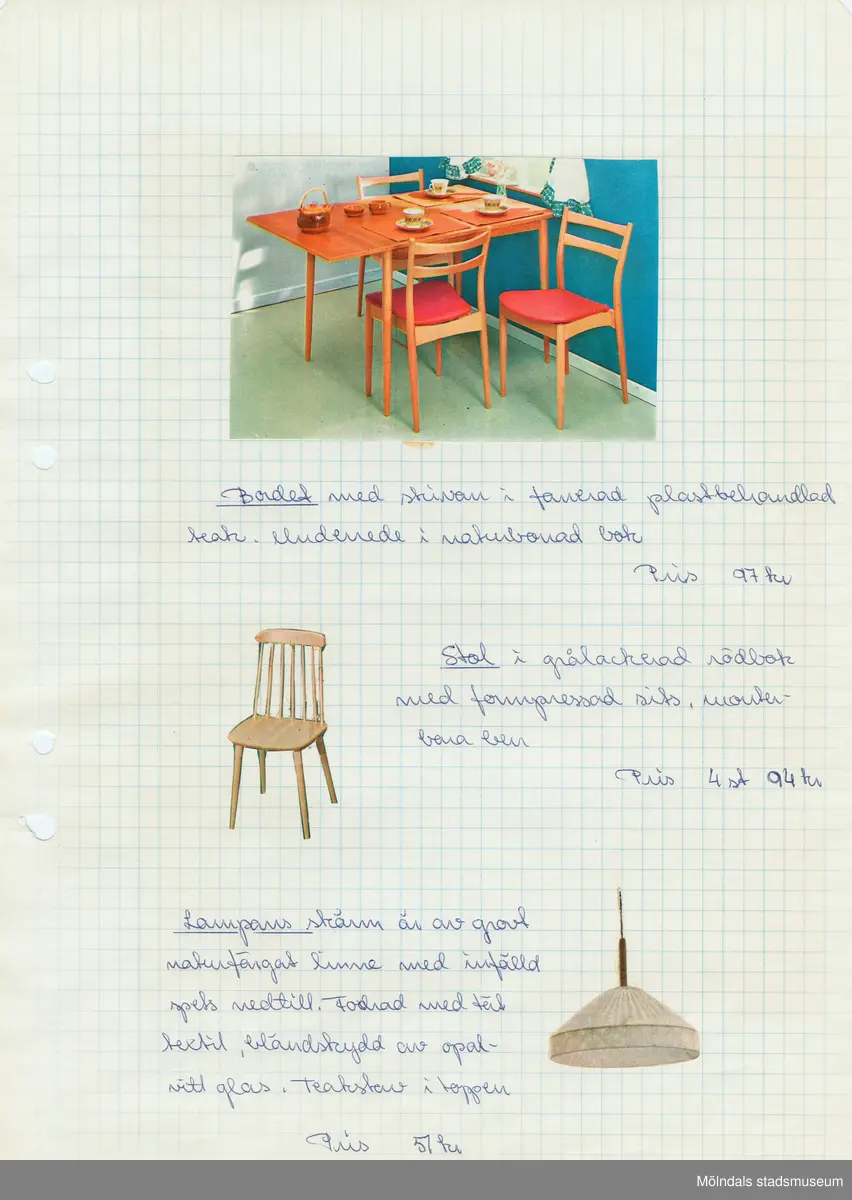 Bordet med skivan i fanerad plastbehandlad
teak. Underrede i naturbonad bok
Pris 97 kr
Stol i grålackerad rödbok
med formpressad sits, monter-
bara ben
Pris 4 st 94 kr
Lampans skärm är av grovt
naturfärgat linne med infälld
spets nedtill. Fodrad med tät
textil, bländskydd av opal-
vitt glas. Teakstav i toppen
Pris 51 kr
Mölndals stadsmuseum